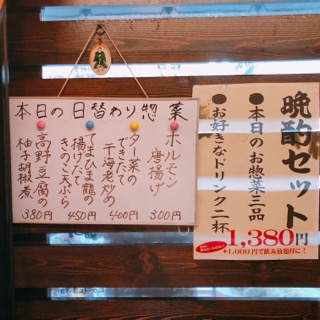 本日の日替わり惣菜
ホルモン
唐揚げ
300円
ター菜の
できたて
干海老炒め
400円
揚げたて
きのこ天ぷら
450円
高野豆腐の
柚子胡椒煮
380円
晩酌セット
●本日のお惣菜三品
●お好きなドリンク二杯
1,380円
+1,000円で飲み放題付に!